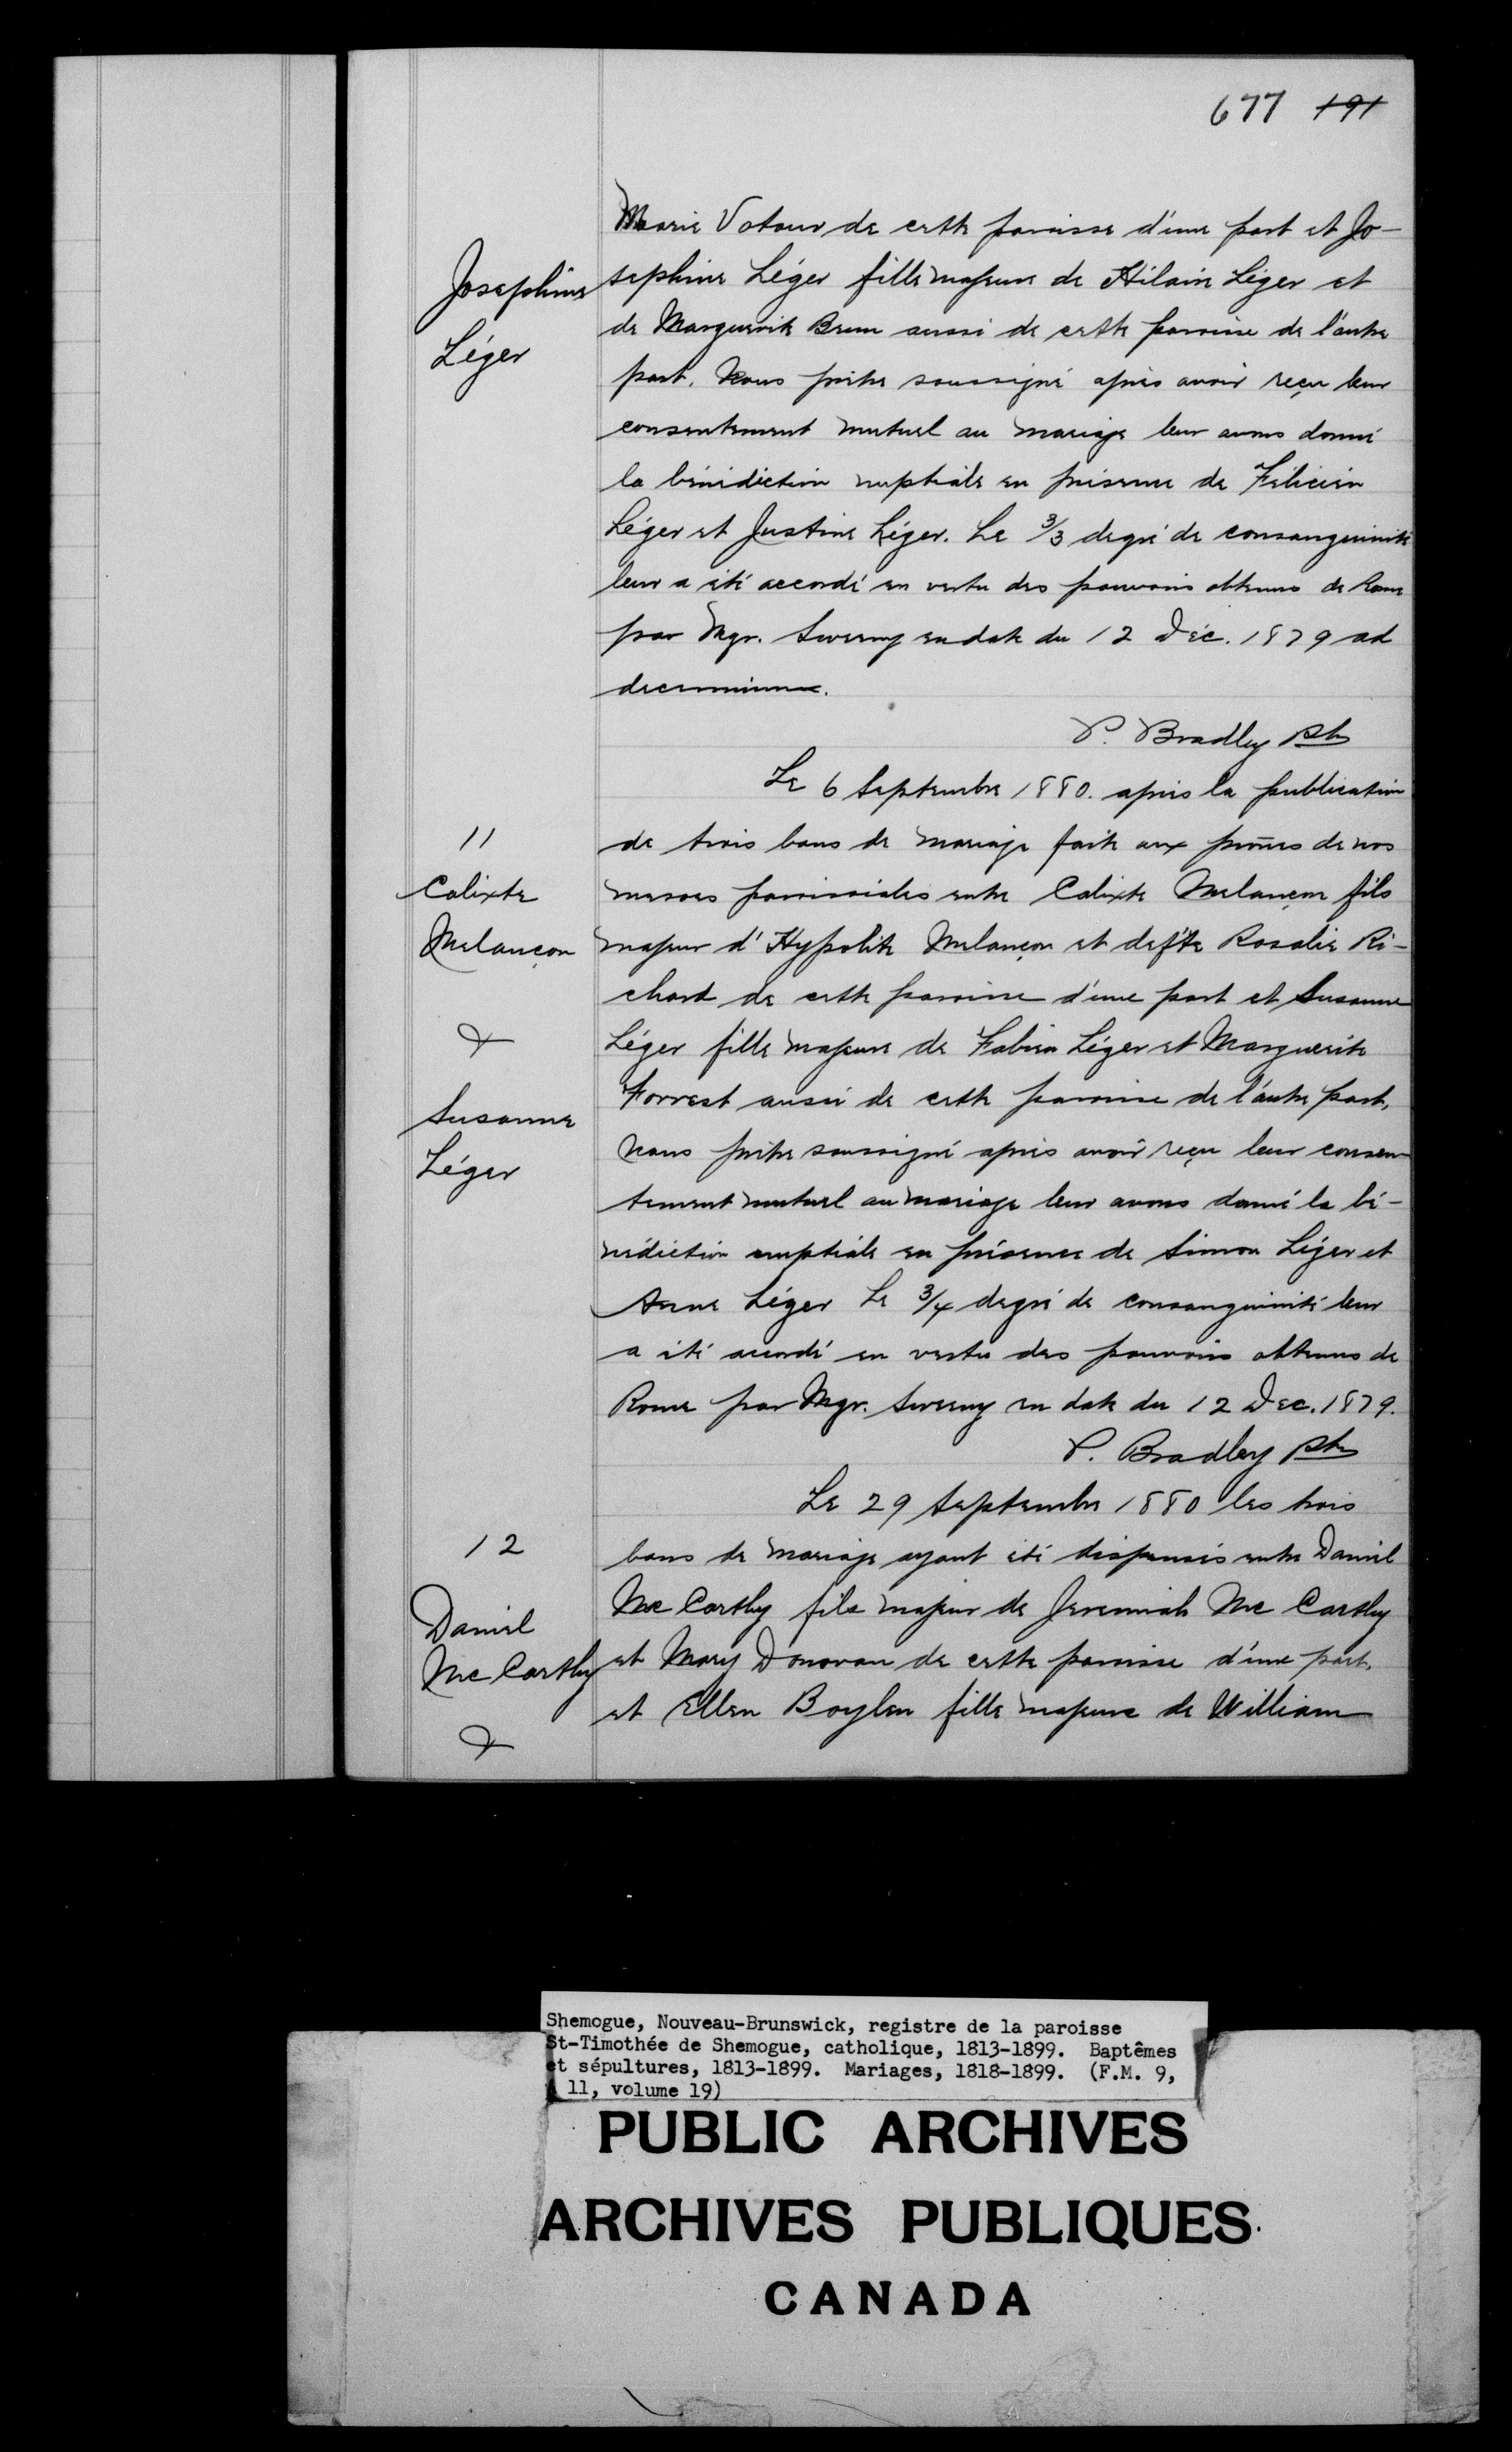 677 191
Marie Votour de cette paroisse d'une part et Jo-
Josephine
sephine Léger fille majeure de Hilaire Léger et
de Marguerite Brun aussi de cette paroisse de l'autre
Léger
part. Nous prêtre soussigné après avoir reçu leur
consentement mutuel au mariage leur avons donné
la bénédiction nuptiale en présence de Felicien
Léger et Justine Léger. Le 3/3 degré de consanguinité
leur a été accordé en vertu des pouvoirs obtenus de Rome
par Mgr. Sweeny en date du 12 Déc. 1879 ad
decennium.
P. Bradley Ptr
Le 6 Septembre 1880. après la publication
11
de trois bans de mariage faite aux prônes de nos
Calixte
messes paroissiales entre Calixte Melançon fils
Melançon
majeur d'Hypolite Melançon et defte Rosalie Ri-
chard de cette paroisse d'une part et Susanne
&
Léger fille majeure de Fabien Léger et Marguerite
Susanne
Forrest aussi de cette paroisse de l'autre part,
Léger
Nous prêtre soussigné après avoir reçu leur consen
tement mutuel au mariage leur avons donné la bé-
nédiction nuptiale en présence de Simon Léger et
Anne Léger Le 3/4 degré de consanguinité leur
a été accordé en vertu des pouvoirs obtenus de
Rome par Mgr. Sweeny en date du 12 Dec. 1879.
P. Bradley Ptr
Le 29 Septembre 1880 les trois
12
bans de mariage ayant été dispensés entre Daniel
Daniel
Mc Carthy fils majeur de Jeremiah Mc Carthy
Mc Carthy
et Mary Donovan de cette paroisse d'une part,
et Ellen Boylen fille majeure de William
&
Shemogue, Nouveau-Brunswick, registre de la paroisse
St-Timothée de Shemogue, catholique, 1813-1899. Baptêmes
et sépultures, 1813-1899. Mariages, 1818-1899. (F.M. 9,
11, volume 19)
PUBLIC ARCHIVES
ARCHIVES PUBLIQUES
CANADA